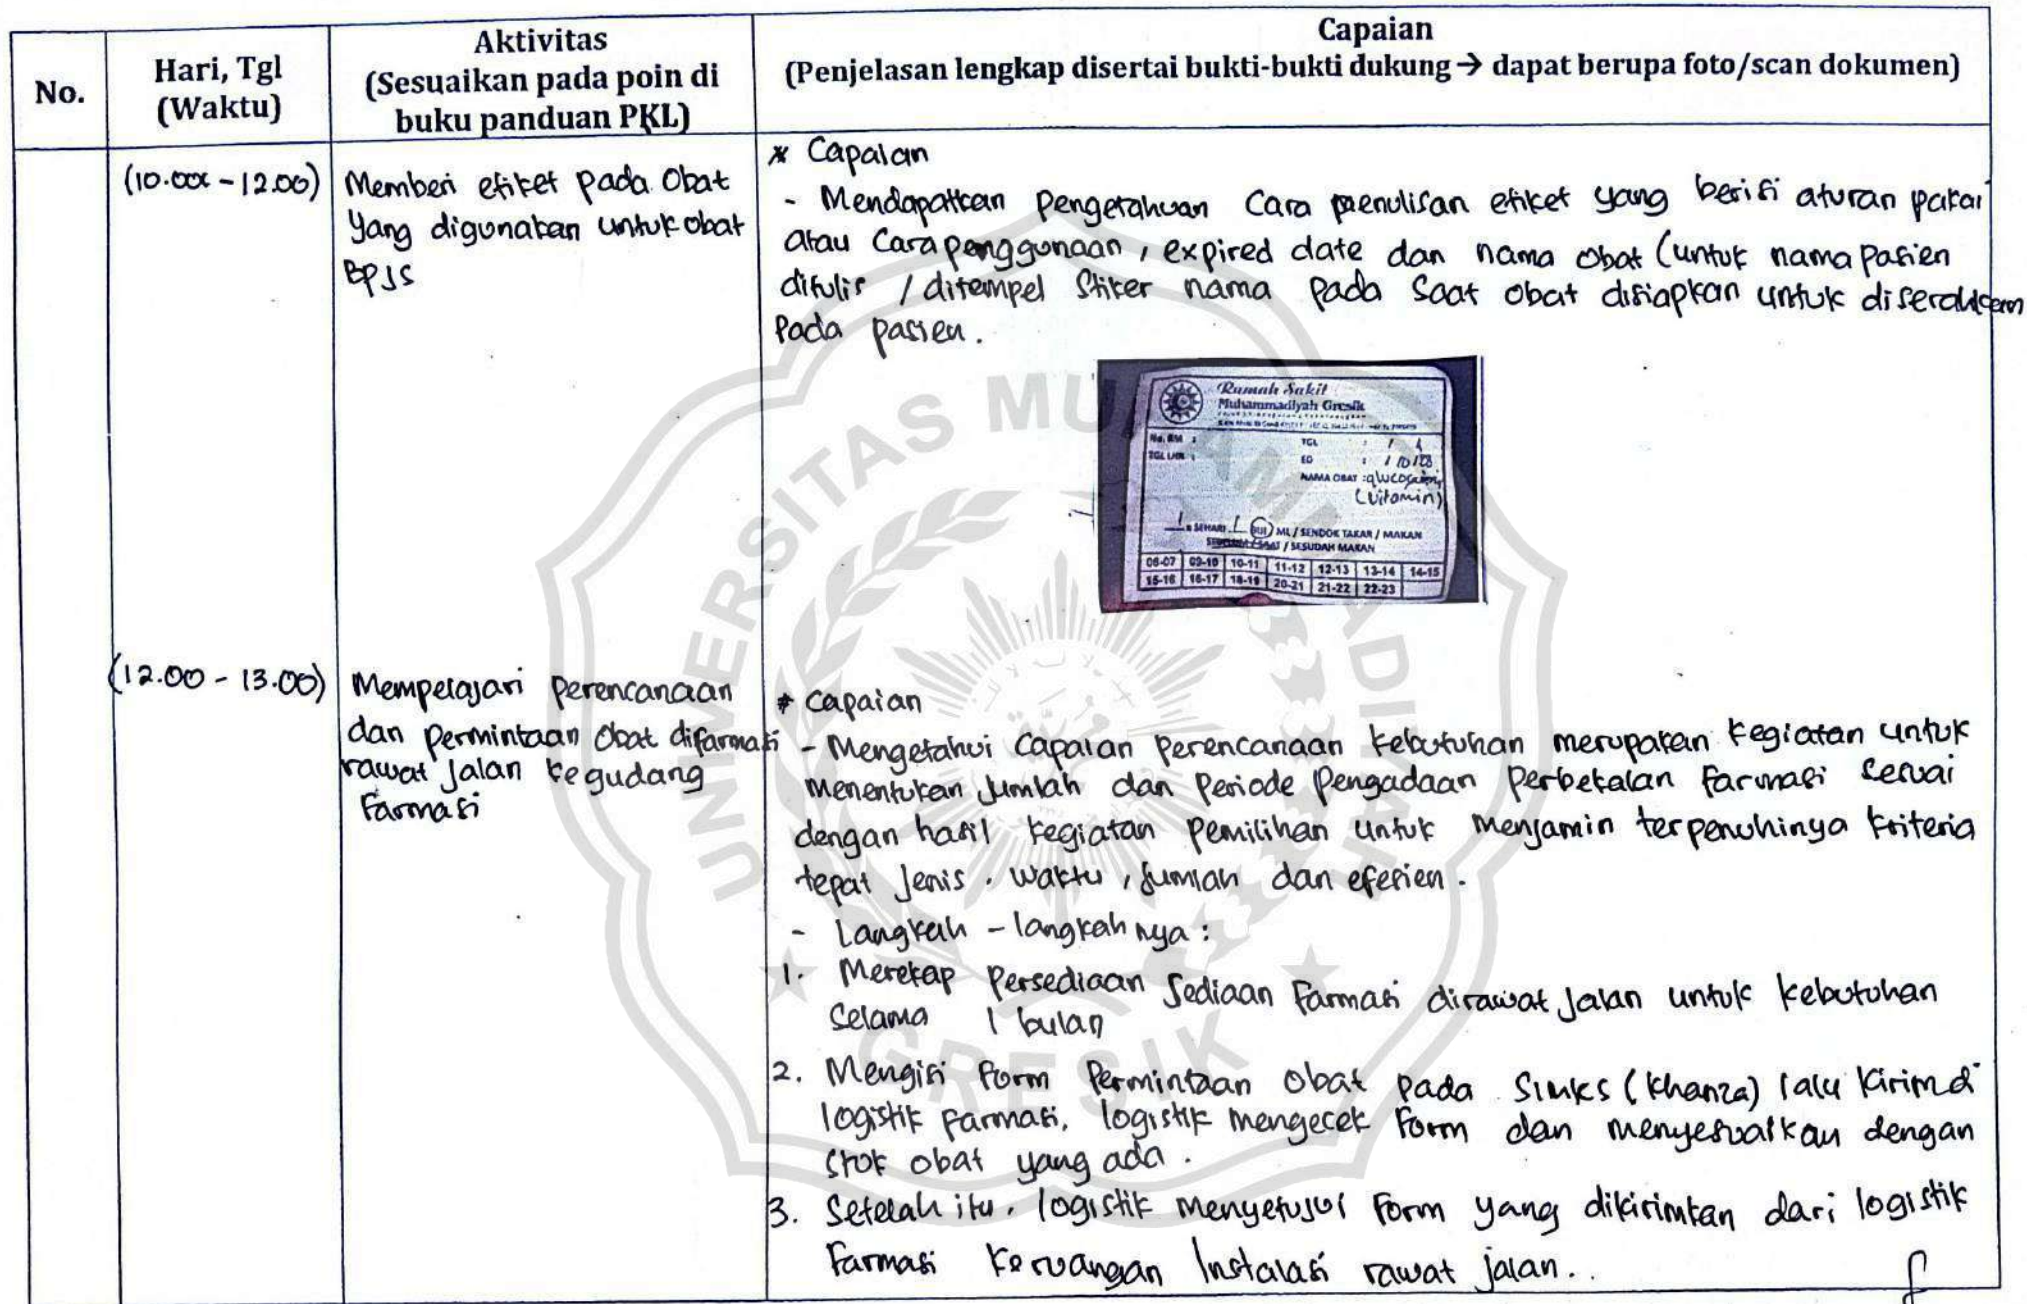 No.
Hari, Tgl
(Waktu)
Aktivitas
(Sesuaikan pada poin di
buku panduan PKL)
Capaian
(Penjelasan lengkap disertai bukti-bukti dukung → dapat berupa foto/scan dokumen)
(10.00 - 12.00)
Memberi etiket pada Obat
yang digunakan untuk obat
BPJS
* Capaian
- Mendapatkan Pengetahuan Cara penulisan etiket yang berisi aturan pakai
atau Cara penggunaan, expired date dan nama obat (untuk nama Pasien
ditulis / ditempel Stiker nama pada saat obat disiapkan untuk diserahkan
Pada pasien.
Rumah Sakit
Muhammadiyah Gresik
No. RM :
TGL : / /
TGL LHR :
ED : / 10/28
NAMA OBAT :
(Vitamin)
1 x SEHARI 1 ML / SENDOK TAKAR / MAKAN
/ SESUDAH MAKAN
06-07 09-10 10-11 11-12 12-13 13-14 14-15
15-16 16-17 18-19 20-21 21-22 22-23
(12.00 - 13.00)
Mempelajari perencanaan
dan permintaan obat difarmasi
rawat jalan kegudang
Farmasi
* Capaian
- Mengetahui Capaian Perencanaan kebutuhan merupakan kegiatan untuk
menentukan jumlah dan Periode Pengadaan Perbekalan farmasi sesuai
dengan hasil kegiatan Pemilihan untuk menjamin terpenuhinya kriteria
tepat Jenis, waktu, jumlah dan efesien.
- Langkah - langkah nya :
1. Merekap Persediaan Sediaan Farmasi dirawat jalan untuk kebutuhan
Selama 1 bulan
2. Mengisi Form Permintaan obat pada Simks (Khanza) lalu kirim di
logistik farmasi. logistik mengecek Form dan menyesuaikan dengan
stok obat yang ada.
3. Setelah itu, logistik menyetujui Form yang dikirimkan dari logistik
Farmasi Keruangan Instalasi rawat jalan..
UNIVERSITAS MUHAMMADIYAH
GRESIK